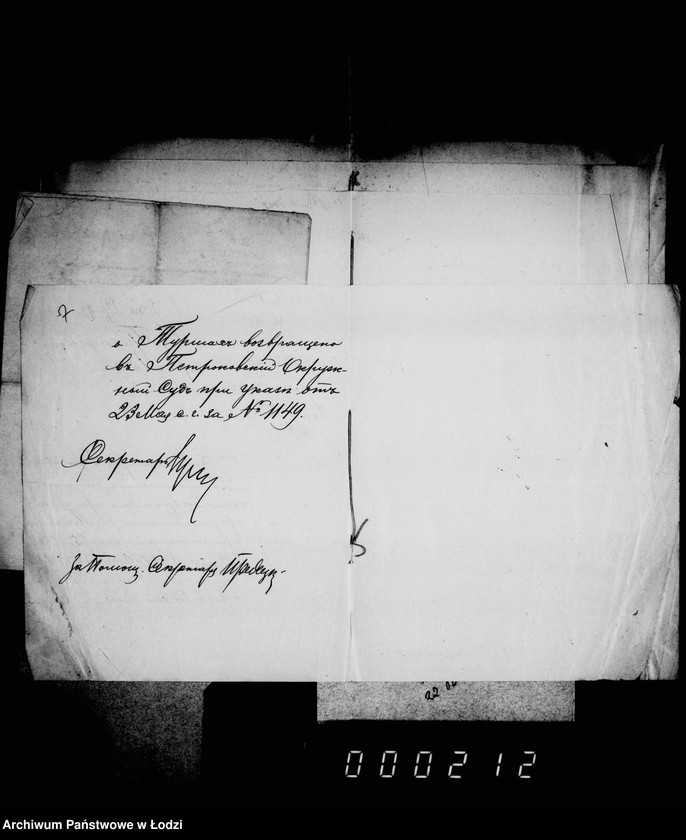 о Туршахъ возвращено
въ Петроковскій Окруж-
ный Судъ при указѣ отъ
23 Мая с. г. за № 1149.
Секретарь
За Помощ. Секретаря
22
000212
Archiwum Państwowe w Łodzi